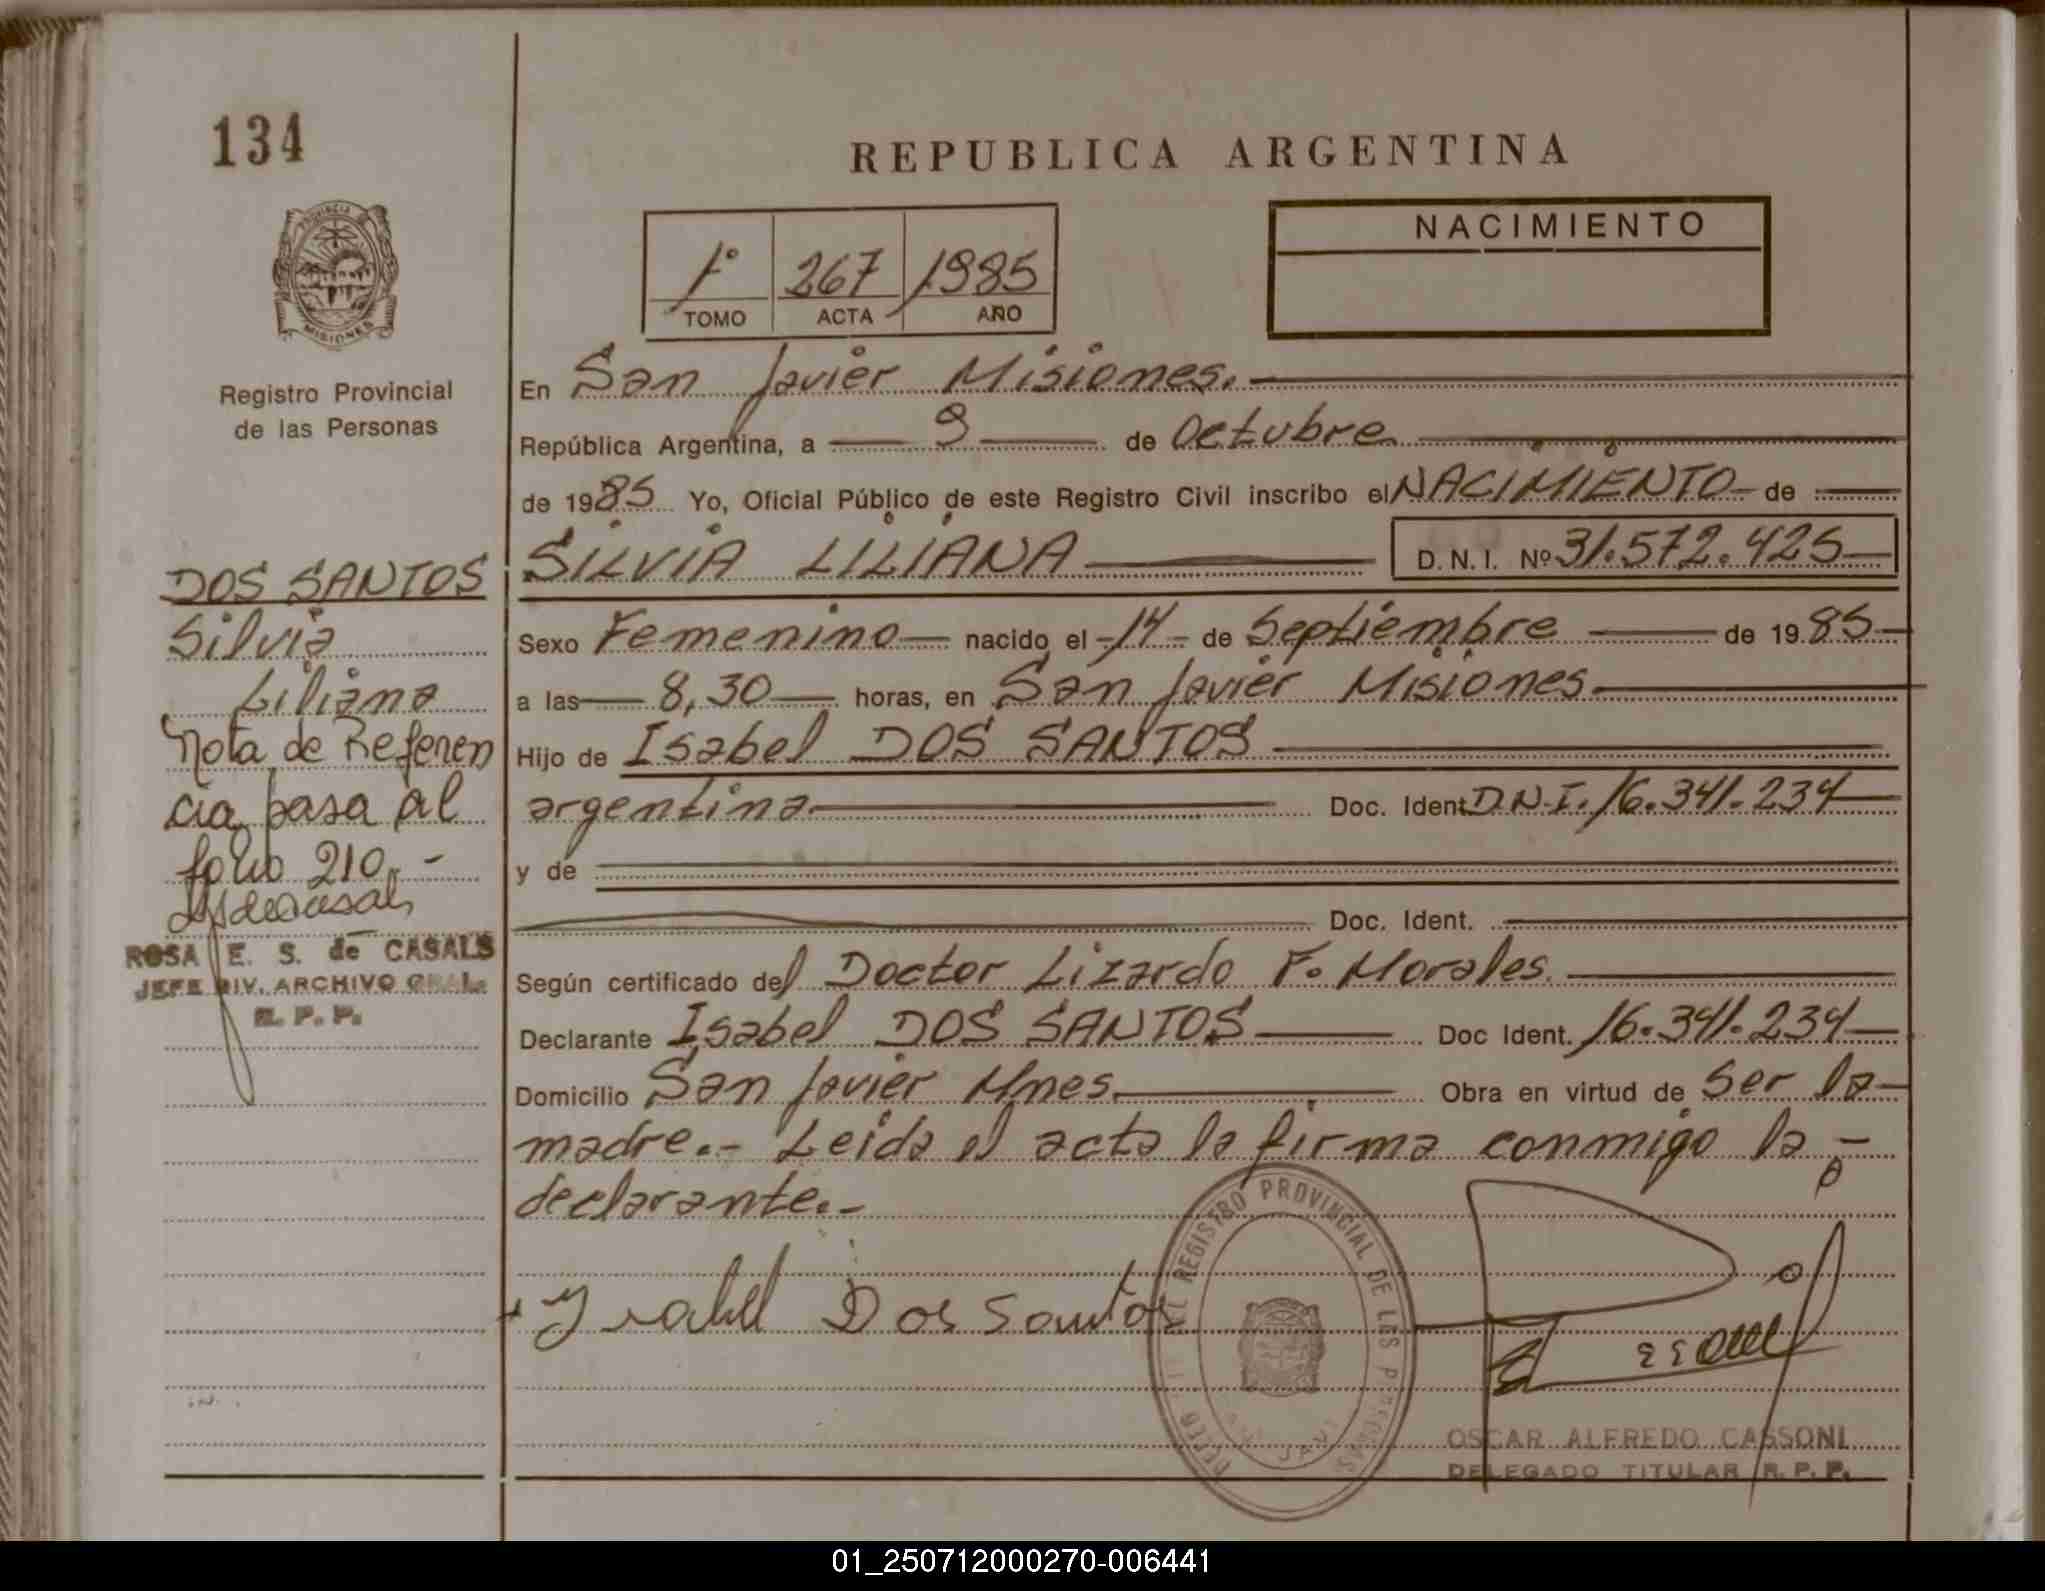 134
PROVINCIA DE
MISIONES
Registro Provincial
de las Personas
DOS SANTOS
Silvia
Liliana
Nota de Referen
cia pasa al
folio 210.-
ROSA E. S. de CASALS
JEFE DIV. ARCHIVO GRAL.
R. P. P.
REPUBLICA ARGENTINA
1° 267 1985
TOMO ACTA AÑO
NACIMIENTO
En San Javier Misiones.
República Argentina, a 9 de Octubre
de 1985 Yo, Oficial Público de este Registro Civil inscribo el NACIMIENTO de
SILVIA LILIANA D.N.I. Nº 31.572.425
Sexo Femenino nacido el 14 de Septiembre de 1985
a las 8,30 horas, en San Javier Misiones
Hijo de Isabel DOS SANTOS
argentina Doc. Ident. D.N.I. 16.341.234
y de
Doc. Ident.
Según certificado del Doctor Lizardo F. Morales.
Declarante Isabel DOS SANTOS Doc Ident. 16.341.234
Domicilio San Javier Mnes. Obra en virtud de Ser la
madre.- Leida el acta la firma conmigo la -
declarante.-
Ysabel Dos Santos
REGISTRO PROVINCIAL DE LAS PERSONAS
OSCAR ALFREDO CASSONI
DELEGADO TITULAR R. P. P.
01_250712000270-006441